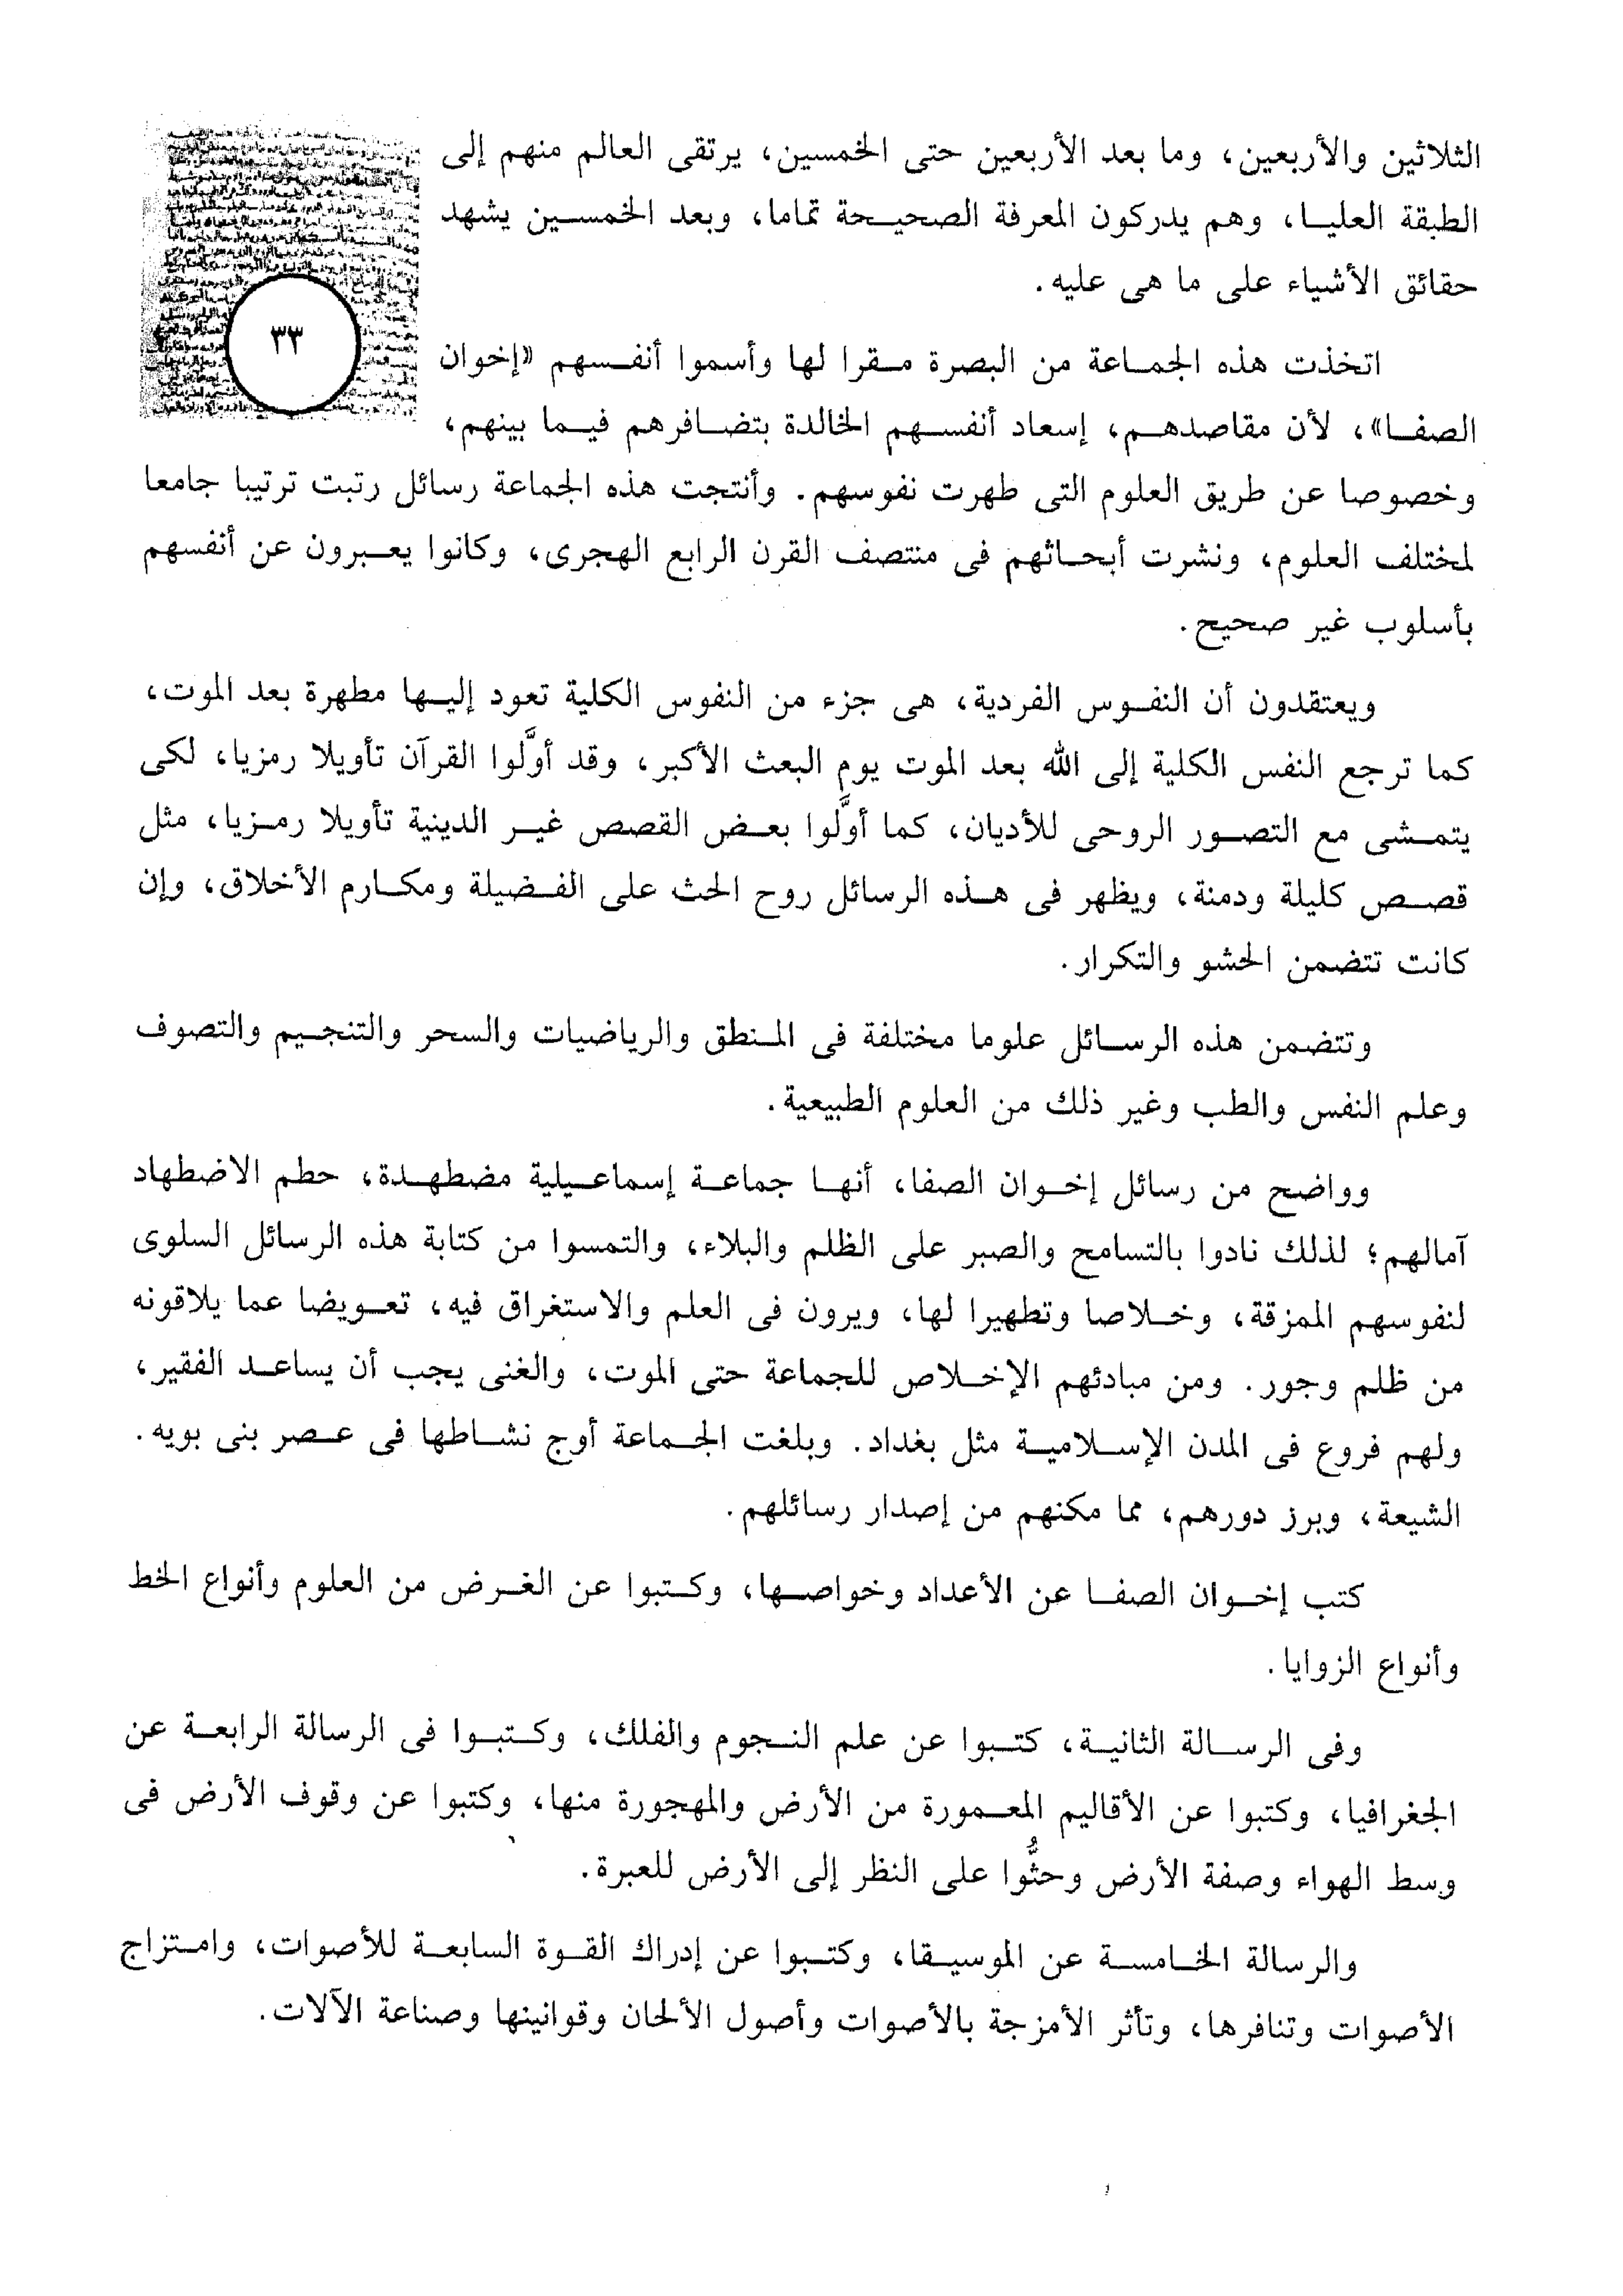 الثلاثين والأربعين، وما بعد الأربعين حتى الخمسين، يرتقى العالم منهم إلى
الطبقة العليا، وهم يدركون المعرفة الصحيحة تماما، وبعد الخمسين يشهد
حقائق الأشياء على ما هى عليه.
٣٣
اتخذت هذه الجماعة من البصرة مقرا لها وأسموا أنفسهم «إخوان
الصفا»، لأن مقاصدهم، إسعاد أنفسهم الخالدة بتضافرهم فيما بينهم،
وخصوصا عن طريق العلوم التى طهرت نفوسهم. وأنتجت هذه الجماعة رسائل رتبت ترتيبا جامعا
لمختلف العلوم، ونشرت أبحاثهم فى منتصف القرن الرابع الهجرى، وكانوا يعبرون عن أنفسهم
بأسلوب غير صحيح.
ويعتقدون أن النفوس الفردية، هى جزء من النفوس الكلية تعود إليها مطهرة بعد الموت،
كما ترجع النفس الكلية إلى الله بعد الموت يوم البعث الأكبر، وقد أوَّلوا القرآن تأويلا رمزيا، لكى
يتمشى مع التصور الروحى للأديان، كما أوَّلوا بعض القصص غير الدينية تأويلا رمزيا، مثل
قصص كليلة ودمنة، ويظهر فى هذه الرسائل روح الحث على الفضيلة ومكارم الأخلاق، وإن
كانت تتضمن الحشو والتكرار.
وتتضمن هذه الرسائل علوما مختلفة فى المنطق والرياضيات والسحر والتنجيم والتصوف
وعلم النفس والطب وغير ذلك من العلوم الطبيعية.
وواضح من رسائل إخوان الصفا، أنها جماعة إسماعيلية مضطهدة، حطم الاضطهاد
آمالهم؛ لذلك نادوا بالتسامح والصبر على الظلم والبلاء، والتمسوا من كتابة هذه الرسائل السلوى
لنفوسهم الممزقة، وخلاصا وتطهيرا لها، ويرون فى العلم والاستغراق فيه، تعويضا عما يلاقونه
من ظلم وجور. ومن مبادئهم الإخلاص للجماعة حتى الموت، والغنى يجب أن يساعد الفقير،
ولهم فروع فى المدن الإسلامية مثل بغداد. وبلغت الجماعة أوج نشاطها فى عصر بنى بويه.
الشيعة، وبرز دورهم، مما مكنهم من إصدار رسائلهم.
كتب إخوان الصفا عن الأعداد وخواصها، وكتبوا عن الغرض من العلوم وأنواع الخط
وأنواع الزوايا.
وفى الرسالة الثانية، كتبوا عن علم النجوم والفلك، وكتبوا فى الرسالة الرابعة عن
الجغرافيا، وكتبوا عن الأقاليم المعمورة من الأرض والمهجورة منها، وكتبوا عن وقوف الأرض فى
وسط الهواء وصفة الأرض وحثُّوا على النظر إلى الأرض للعبرة.
والرسالة الخامسة عن الموسيقا، وكتبوا عن إدراك القوة السابعة للأصوات، وامتزاج
الأصوات وتنافرها، وتأثر الأمزجة بالأصوات وأصول الألحان وقوانينها وصناعة الآلات.